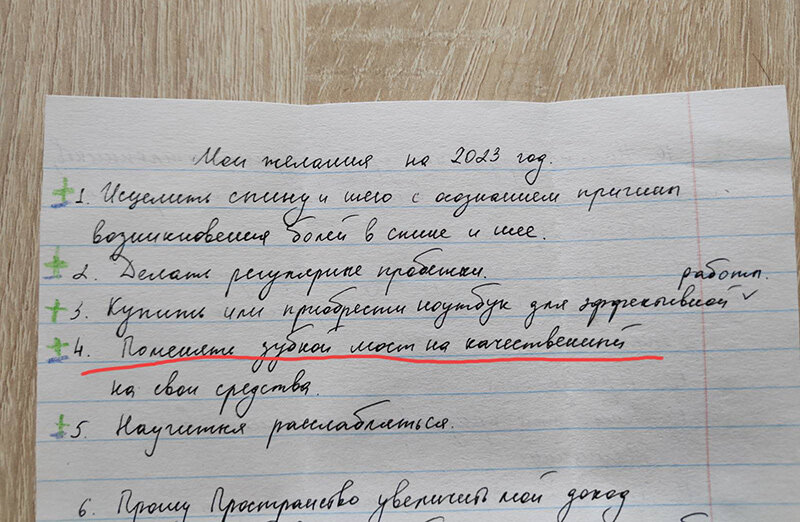 Мои желания на 2023 год.
1. Исцелить спину и шею с осознанием причины
возникновения болей в спине и шее.
2. Делать регулярные пробежки.
работы.
3. Купить или приобрести ноутбук для эффективной ✓
4. Поменять зубной мост на качественный
на свои средства.
5. Научиться расслабляться.
6. Прошу Пространство увеличить мой доход